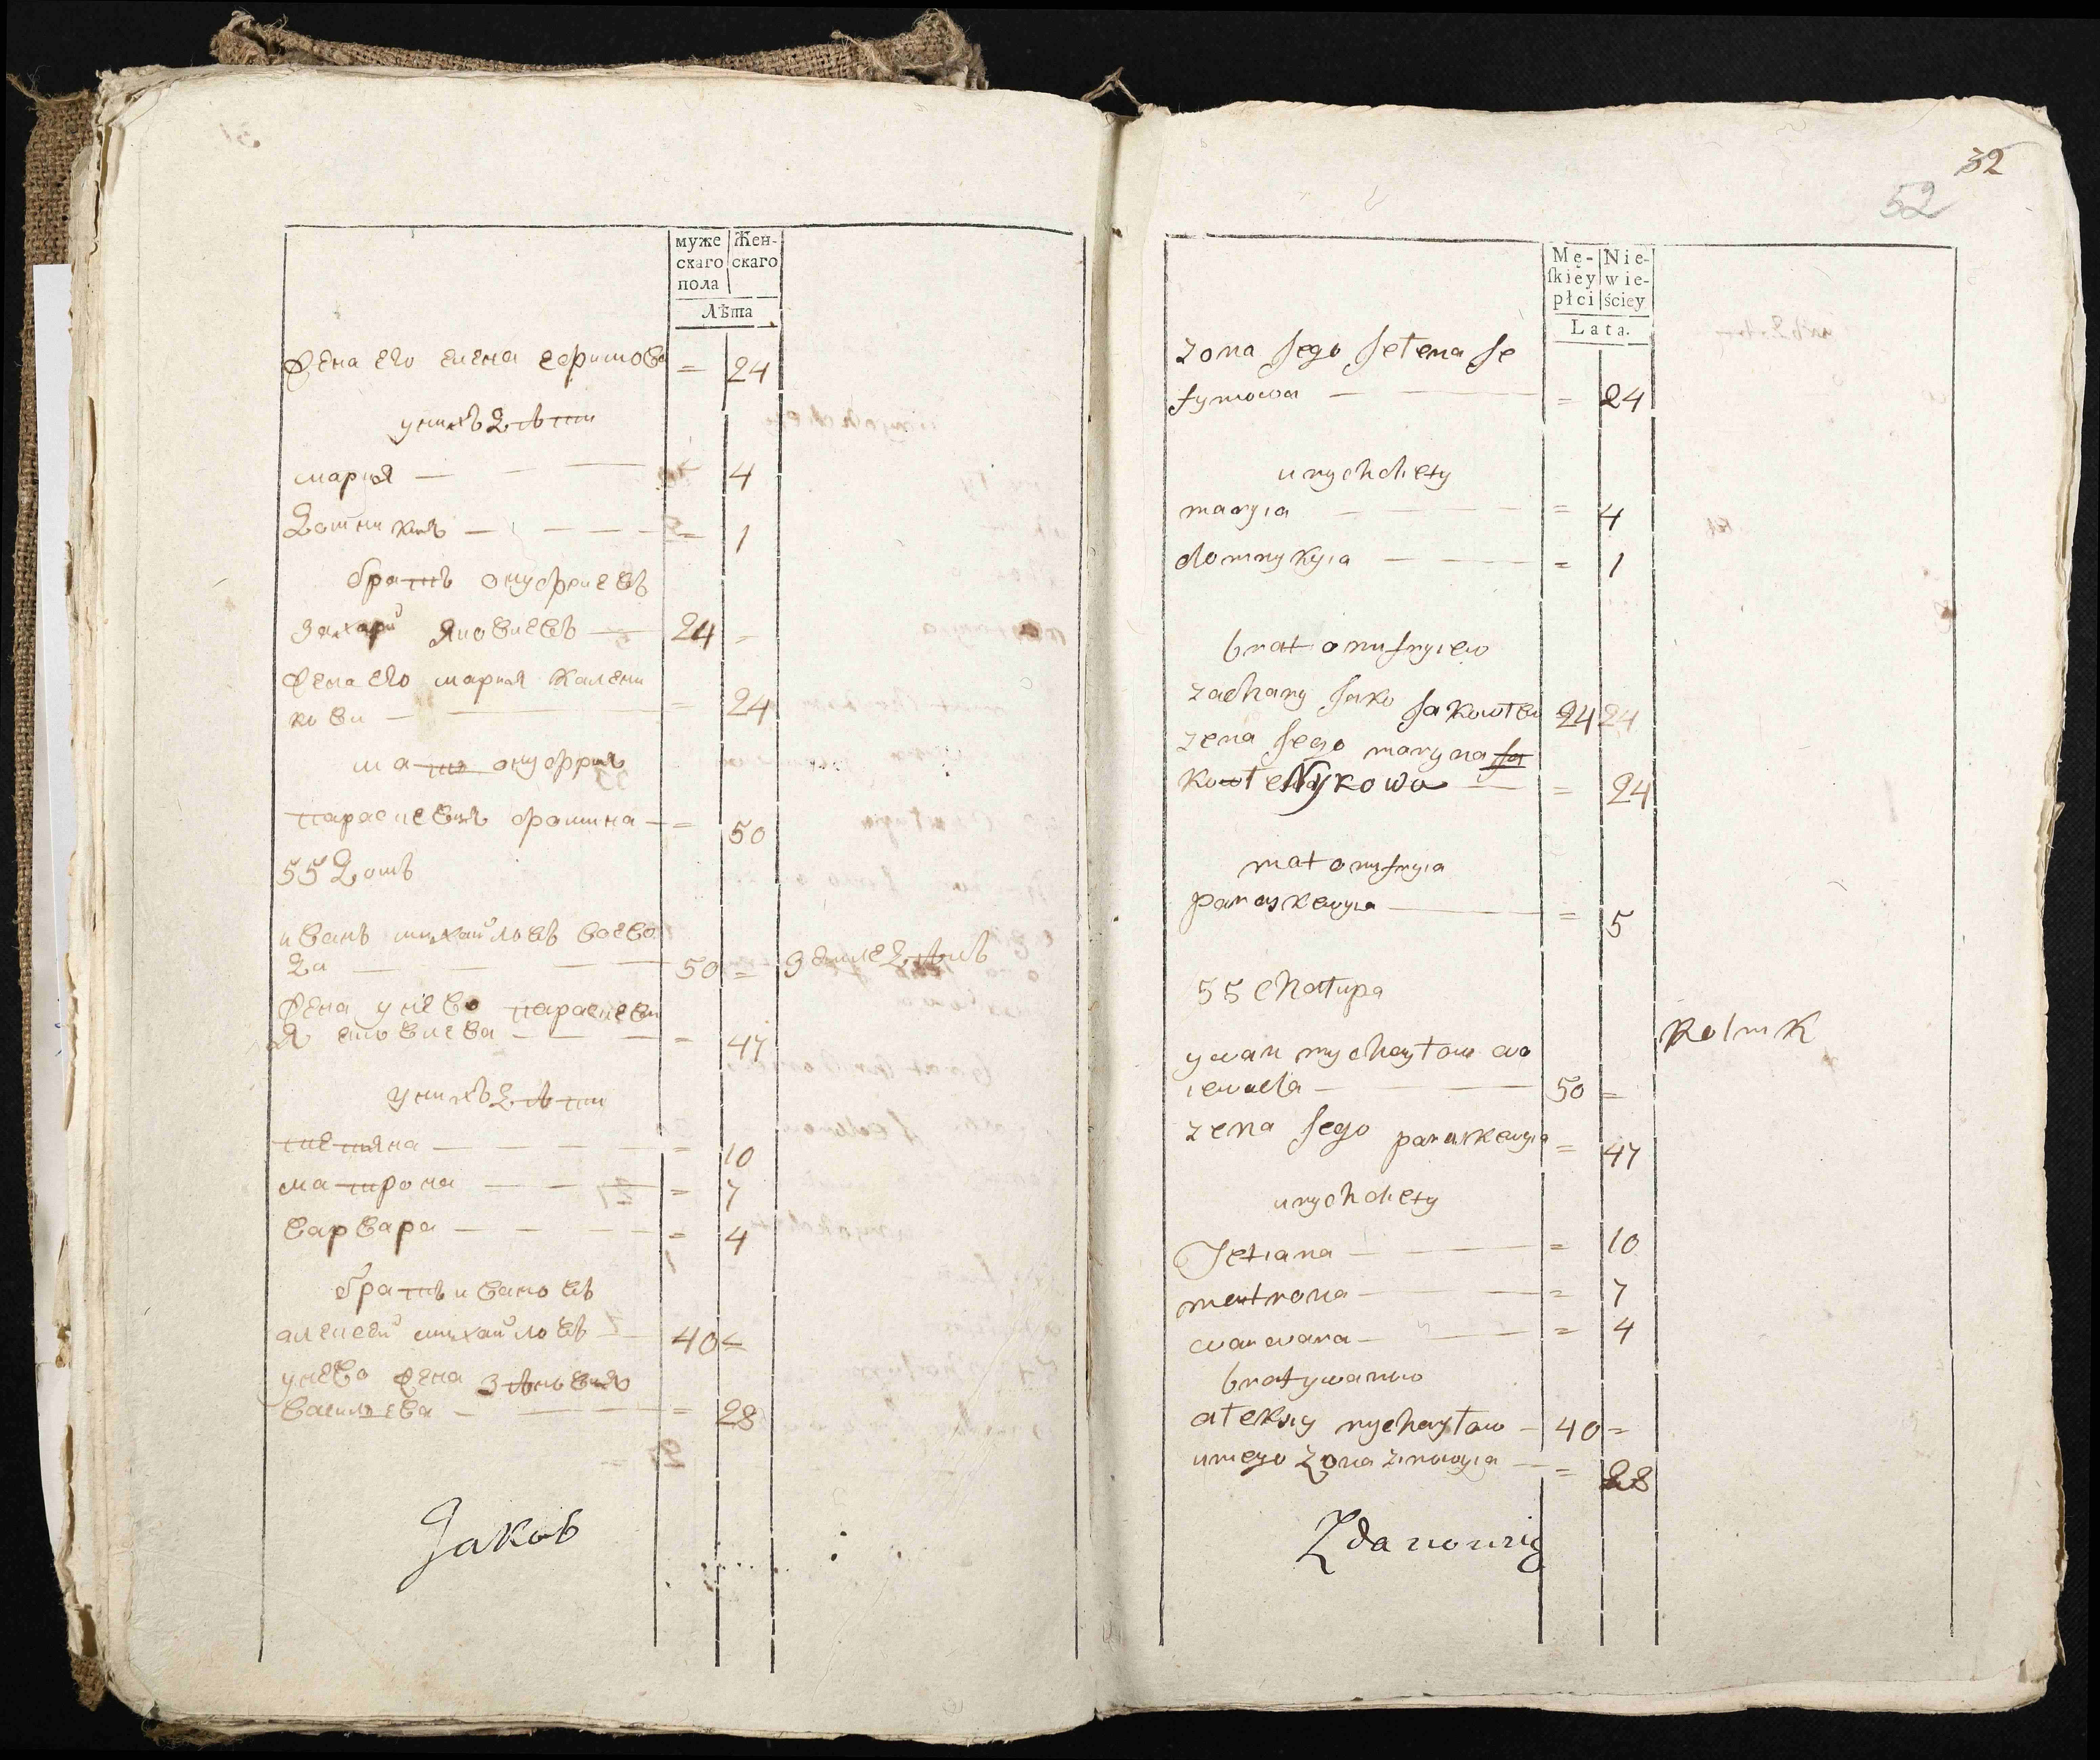 муже
скаго
пола
Жен-
скаго
Лѣта
Жена его елена ефимова = 24
унихъ дѣти
мария — 4
домникия — = 1
братъ онуфриевъ
захарй яковлевъ — 24 =
Жена его мария калени
кови — = 24
мать онуфрия
параскевия фомина — = 50
55 домъ
иванъ михайловъ воево
да — 50 = земледѣлъ
Жена унево параскеви
я
— = 47
унихъ дѣти
тетяна — = 10
матрона — = 7
варвара — = 4
братъ ивановъ
алексей михайловъ — 40 =
унево жена зѣновия
василева — = 28
Jakob
32
52
Mę-
ſkiey
płci
Nie-
wie-
ściey
Lata.
zona jego jełena je
fymowa — = 24
unych diety
maryia — = 4
domnykyia — = 1
brat onufryiew
zachary jako jakowlew 24 24
zena jego maryna ja
kowłeNykowa — = 24
mat onufryia
paraskewyia — = 5
55 chatupa
ywan mychayłow wo
iewoda — 50 = Rolnik
zena jego paraskewyia = 47
unych diety
Tetiana — = 10
matrona — = 7
warwara — = 4
brat ywanuw
ałeksiy mychayłow — 40 =
uniego zona zinowyia — = 28
Zdanowicz